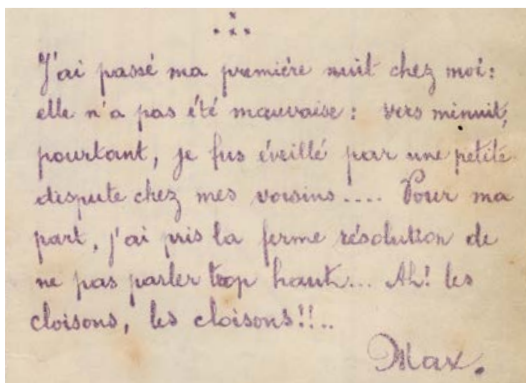 J'ai passé ma première nuit chez moi:
elle n'a pas été mauvaise: vers minuit,
pourtant, je fus éveillé par une petite
dispute chez mes voisins.... Pour ma
part, j'ai pris la ferme résolution de
ne pas parler trop haut... Ah! les
cloisons, les cloisons!!..
Max.